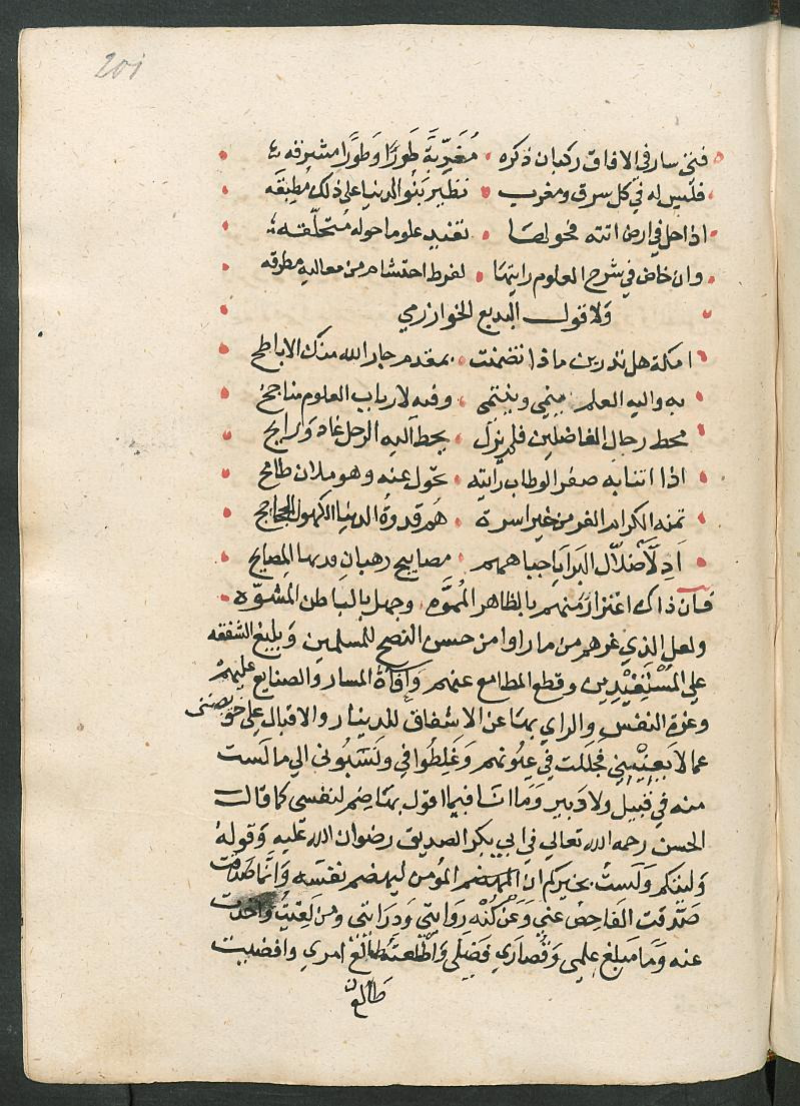 201
فتى سار في الافاق ركبان ذكره مُغَرِّبَة طَورًا وَطَورًا مشرقه
فليس له في كل سرق ومغرب نظير بَنُو الدنيا على ذلك مُطبقَه
اذا حل في ارض اتته فحولها تفيد علوما حوله مُتحلّقه
وان خاض في شرح العلوم رايتها لفرط احتشام من معاليه مطرقه
وَلا قول البديع الخوارزمي
امكة هل تدرين ماذا تضمنت بمقدم جار الله منك الاباطح
به واليه العلم ينمي وينتمى وفيه لارباب العلوم مناجح
محط رحال الفاضلين فلم يزل يحط اليه الرحل غاد وَرايح
اذا انتابه صفر الوطاب رايته تحول عنه وهو ملان طامح
تمنه الكرام الغر من خير اسرة هُم قدوةُ الدنيا الكهول الججاجح
اَدِلَّا ضلّال البَرايَا جباههم مصابيح رهبان المصابح
فان ذاك اغترار منهم بالظاهر المُموَّه وجهل بالباطن المشوّه
ولعل الذي غرهم من ما راوا من حسن النصح للمسلمين وَبليغ الشفقه
على المُسْتَفيْدِين وقطع المطامع عنهم وَافاة المسار والصنايع عليهم
وعزة النفس والراي بها عن الاسفاف للدينار والاقبال على خويصتى
عما لا يعنِيْني فجللت في عيونهم وَغَلِطُوا في وَنسَبُونى الي ما لست
منه في قبيل ولا دَبير وَما انا فيما اقول بهاضم لنفسى كما قال
الحسن رحمه الله تعالي في ابي بكر الصديق رضوان الله عليه وَقوله
وَليتكم وَلَستُ بخيركم ان المؤمن ليهضم نفسَه وَانّما صَدَقت
صَدّقت الفَاحِصَ عني وَعَن كُنْه رِوَايتي وَدرَايتي ومن لقيتُ وَاخذت
عنه وَمَا مبلغ علمي وَقُصارَي فَضلى وَاطْلعتُه طالع امري وافضيت
طالع